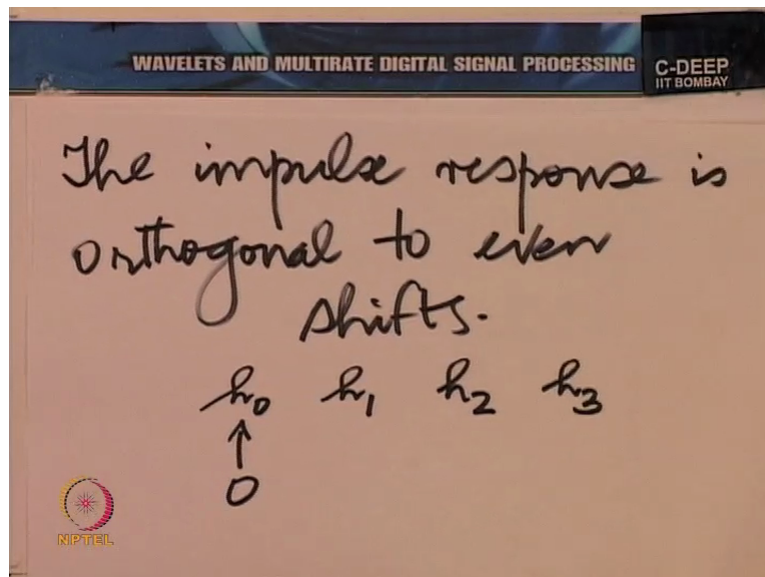 WAVELETS AND MULTIRATE DIGITAL SIGNAL PROCESSING
C-DEEP
IIT BOMBAY
The impulse response is
orthogonal to even
shifts.
h₀ h₁ h₂ h₃
↑
0
NPTEL